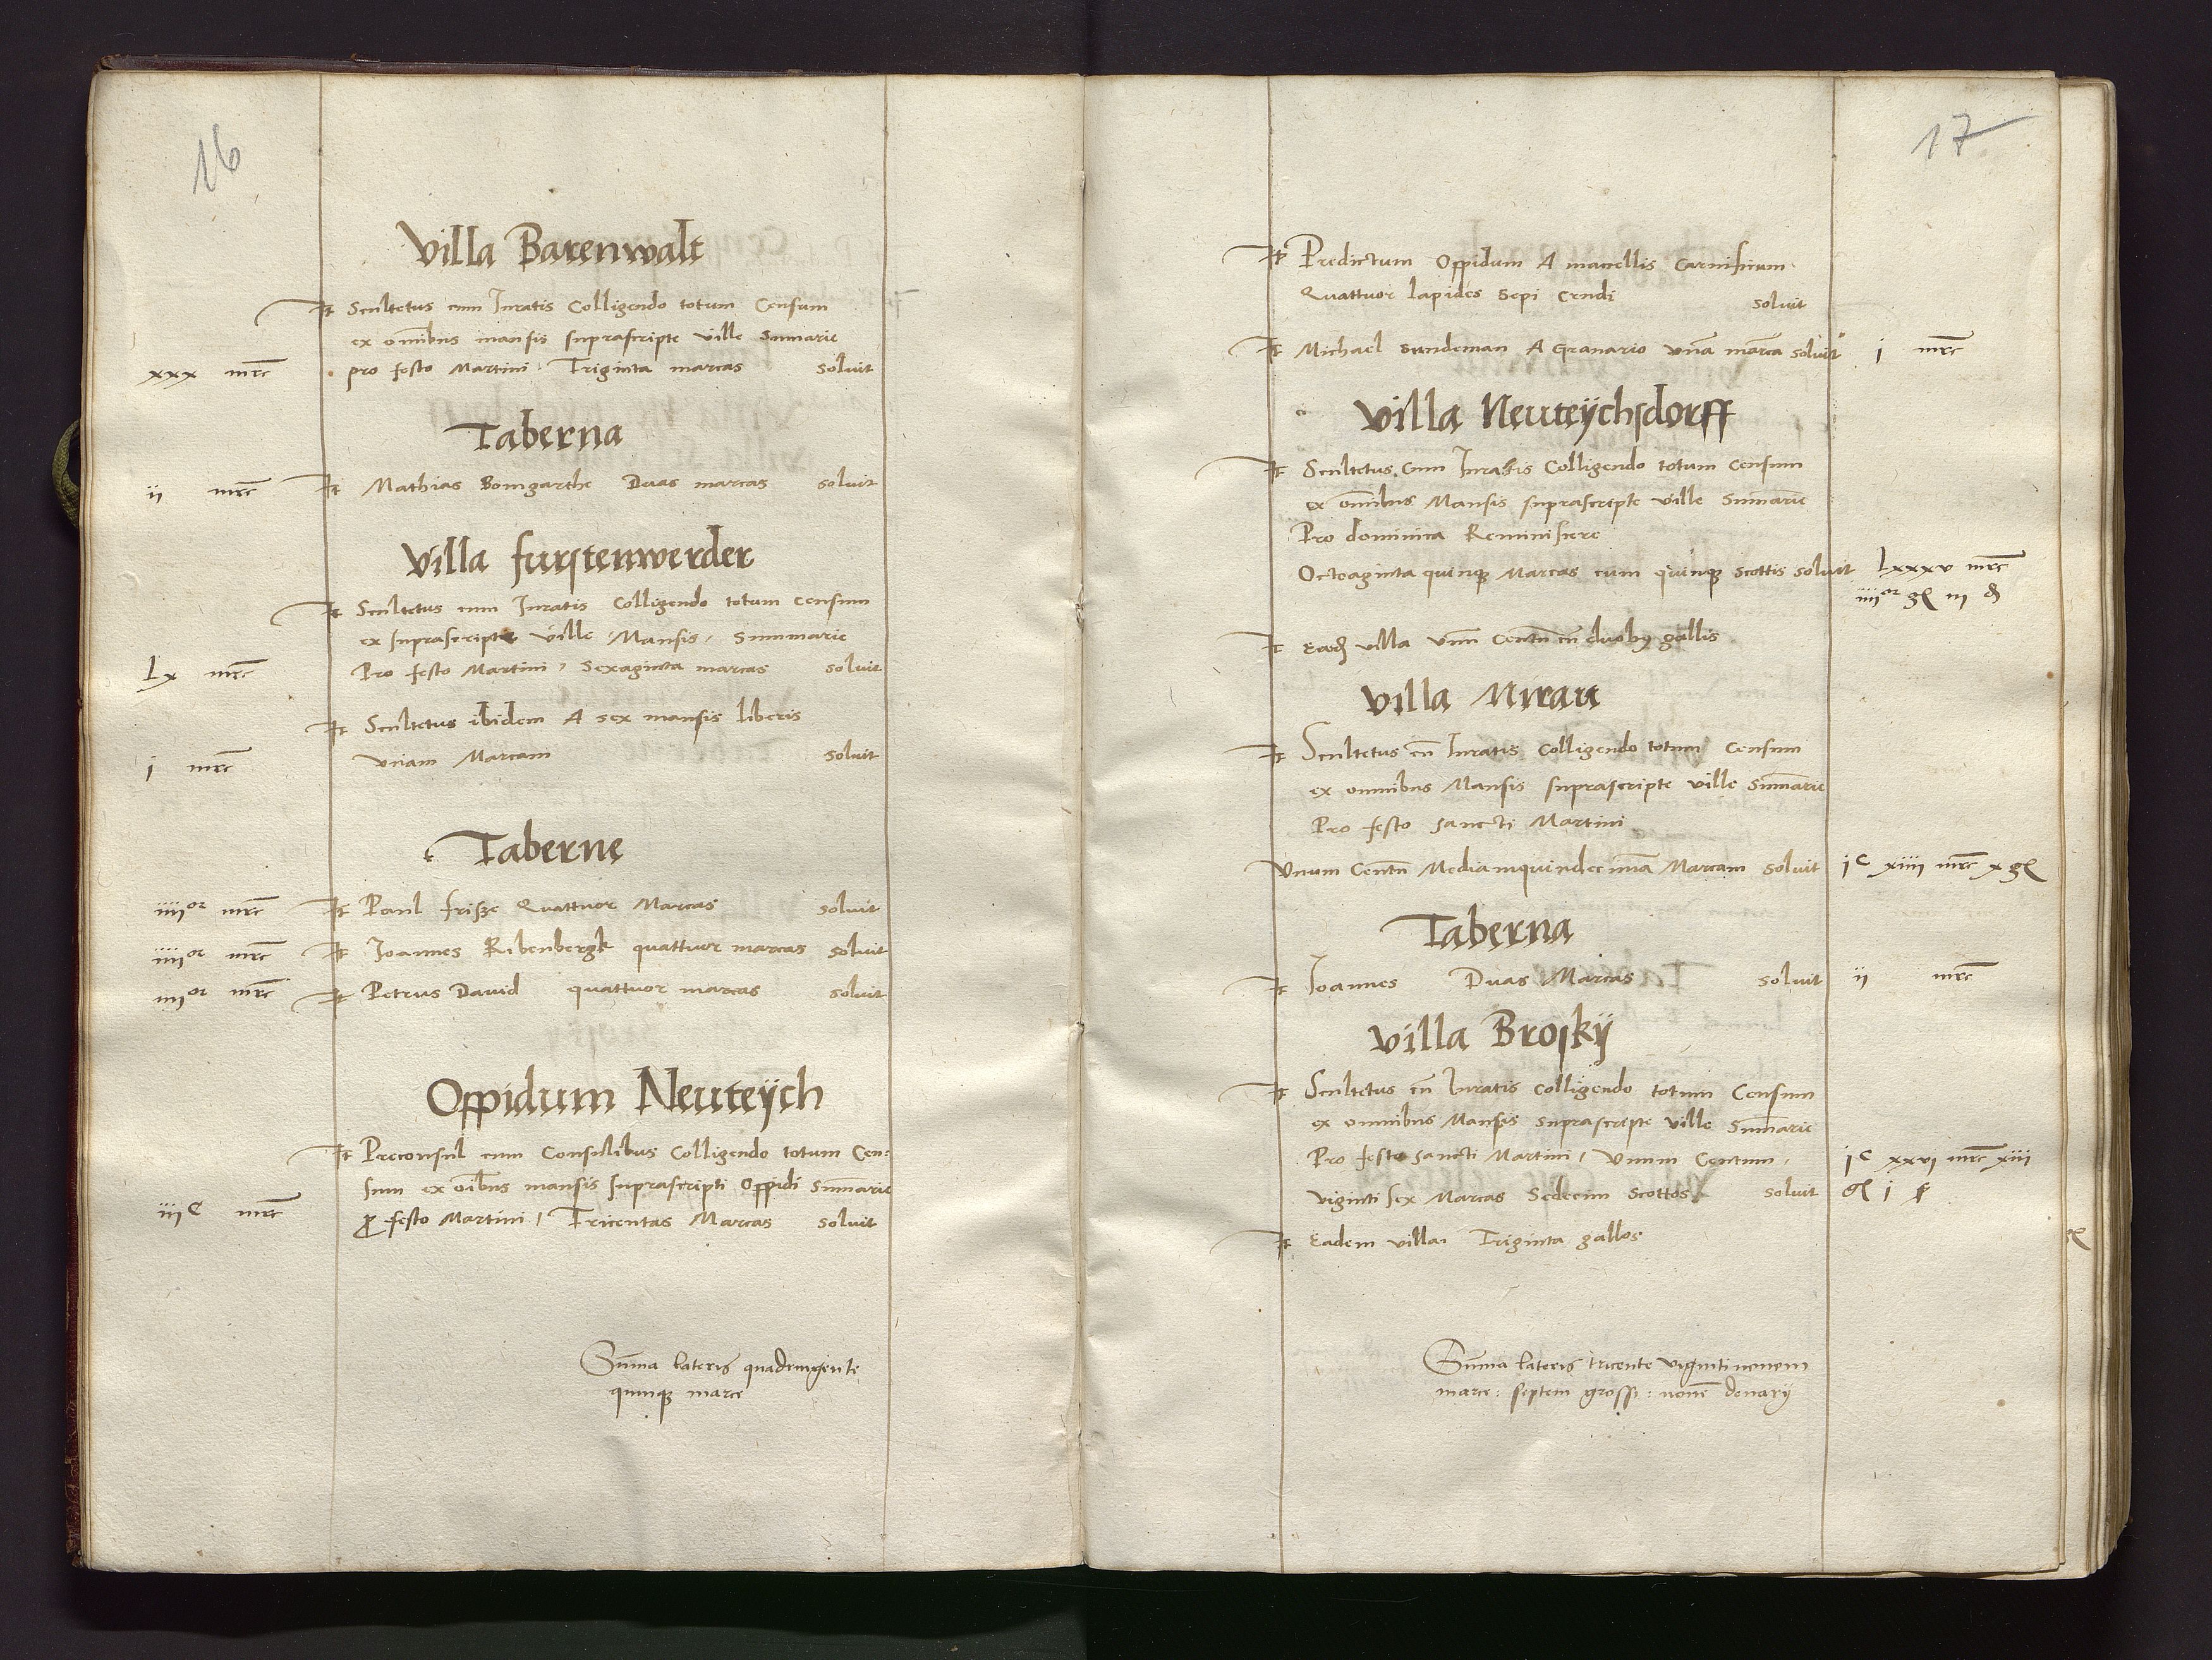 16
Villa Barenwalt
It Scultetus cum Iuratis Colligendo totum Censum
ex omībus mansis suprascripte ville Sumarie
xxx mrc pro festo Martini Triginta marcas soluit
Taberna
ii mrc It Mathias Bomgarthe Duas marcas soluit
Villa furstenwerder
It Scultetus cum Iuratis Colligendo totum censum
ex suprascripte ville Mansis, Summarie
Lx mrc Pro festo Martini, Sexaginta marcas soluit
It Scultetus ibidem A sex mansis liberis
i mrc vnam Marcam soluit
Taberne
iiii or mrc It Paul frisze Quattuor Marcas soluit
iiii or mrc It Joannes Ribenbergk quattuor marcas soluit
iiii or mrc It Petrus David quattuor marcas soluit
Oppidum Neuteÿch
It Preconsul cum Consulibus Colligendo totum Cen:
sum ex oībus mansis suprascripti Oppidi Sūmarie
iii C mrc ꝓ festo Martini / Tricentas Marcas soluit
Sūma lateris quadringente
quinqꝫ marce
17
It Predictum Oppidum A macellis carnificum
Quattuor lapides sepi crudi soluit
It Michael Sundeman A Granario vnā marcā soluit i mrc
Villa Neuteÿchsdorff
It Scultetus cum Iuratis Colligendo totum censum
ex omībus Mansis suprascripte ville Summarie
Pro dominica Reminiscere
Octoaginta quinqꝫ Marcas cum quinqꝫ scottis soluit Lxxxv mrc
iiii or gl iii ₰
It Eadē villa vnū Centū cū duobꝫ gallis
Villa Mirau
It Scultetus cū Iuratis Colligendo totum Censum
ex omnibus Mansis suprascripte ville Sūmarie
Pro festo sancti Martini
Vnum Centū Mediamquindecimā Marcam soluit i C xiiii mrc x gl
Taberna
It Joannes Duas Marcas soluit ii mrc
Villa Broskÿ
It Scultetus cū Iuratis colligendo totum Censum
ex omnibus Mansis suprascripte ville Sūmarie
Pro festo sancti Martini / Vnum Centum, i C xxvi mrc xiii
viginti sex Marcas Sedecim Scottos soluit gl i ß
It Eadem villa Triginta gallos
Sūma lateris tricente vigintinouem
marce: septem grossi: nouē denarÿ